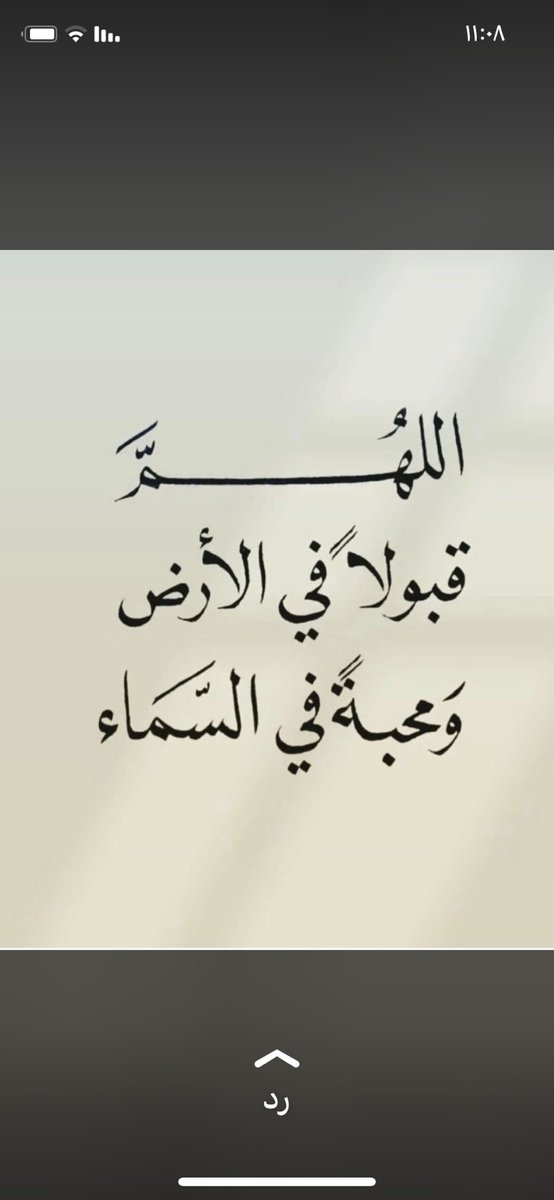 ١١:٠٨
اللهُمَّ
قبولاً في الأرض
وَمحبةً في السَّماء
رد